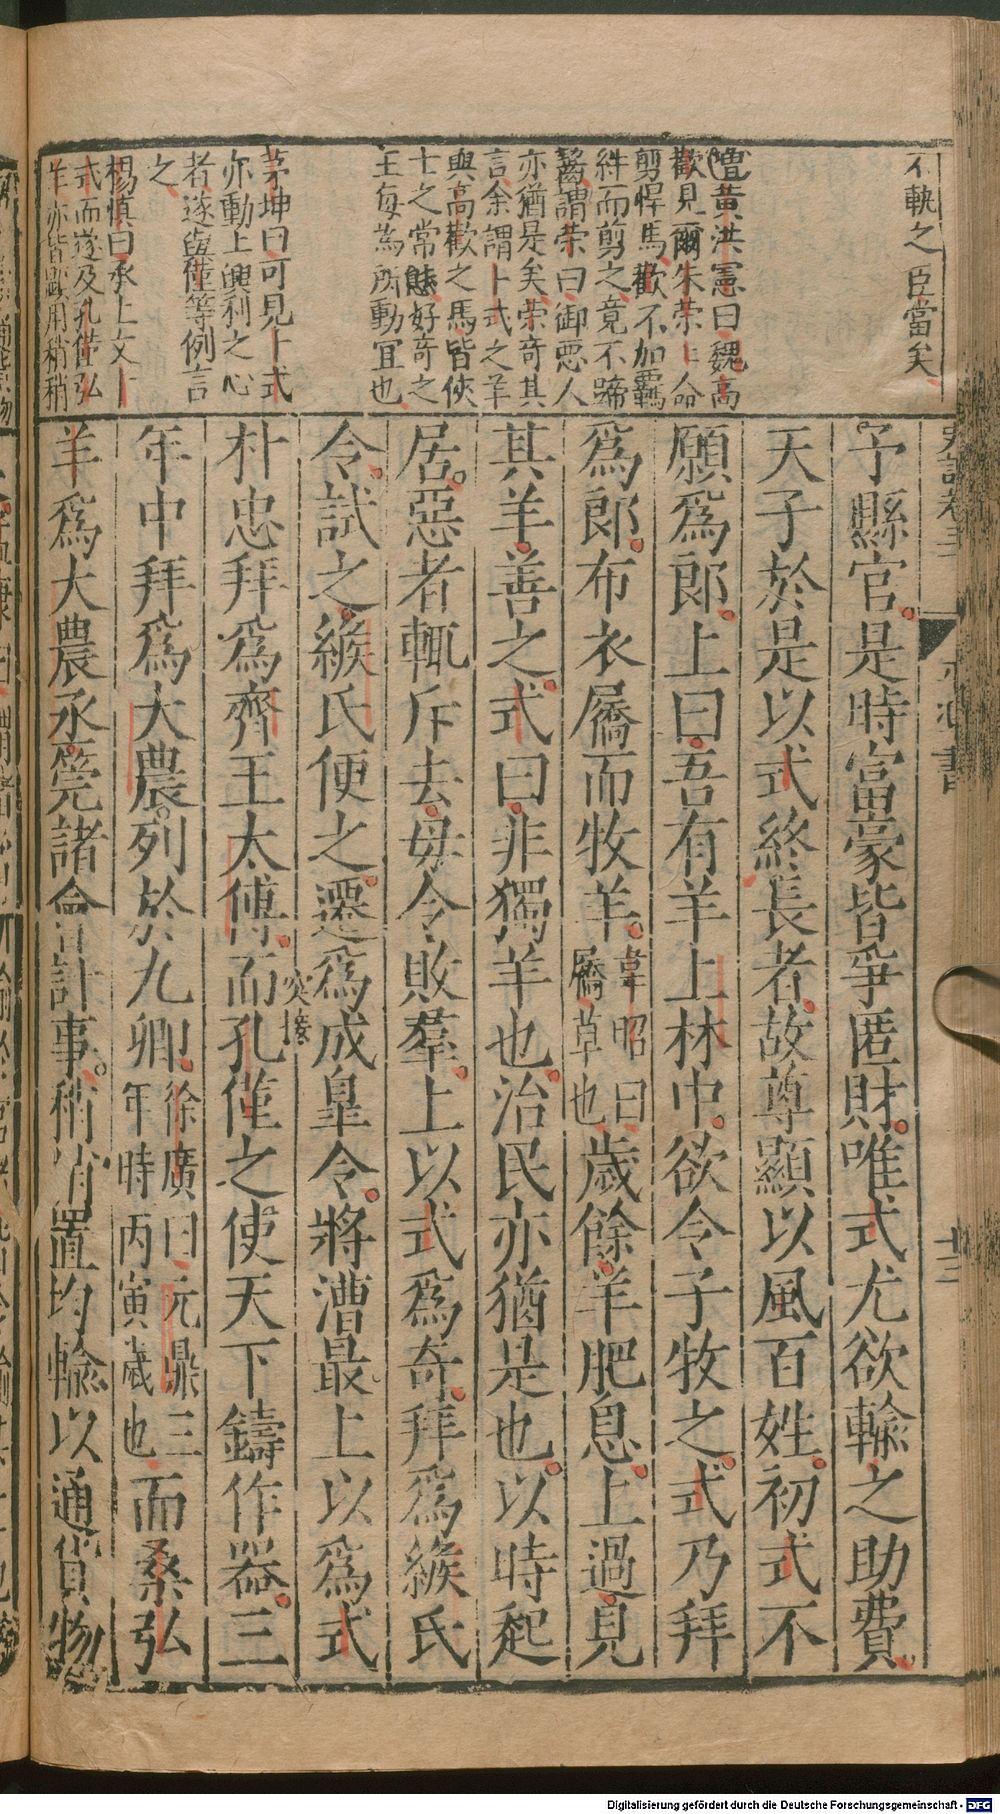 不軌之臣當矣
黃洪憲曰魏高
歡見爾朱榮上命
剪悍馬歡不加羈
絆而剪之竟不蹄
齧謂榮曰御惡人
亦猶是矣榮奇其
言余謂卜式之羊
與高歡之馬皆俠
士之常態好奇之
主每為所動冝也
茅坤曰可見卜式
亦動上興利之心
者遂與僅等例言
之
楊慎曰承上文卜
式而遂及孔僅弘
羊亦皆用稍稍
予縣官是時富豪皆爭匿財唯式尤欲輸之助費
天子於是以式終長者故尊顯以風百姓初式不
願爲郎上曰吾有羊上林中欲令子牧之式乃拜
爲郎布衣屩而牧羊韋昭曰屩草也歲餘羊肥息上過見
其羊善之式曰非獨羊也治民亦猶是也以時起
居惡者輒斥去毋令敗羣上以式爲奇拜爲緱氏
令試之緱氏便之遷爲成皐令將漕最上以爲式
突接
朴忠拜爲齊王太傅而孔僅之使天下鑄作器三
年中拜爲大農列於九卿徐廣曰元鼎三年時丙寅歲也而桑弘
羊爲大農丞筦諸會計事稍稍置均輸以通貨物
史記卷三十
平準書
十三
Digitalisierung gefördert durch die Deutsche Forschungsgemeinschaft - DFG